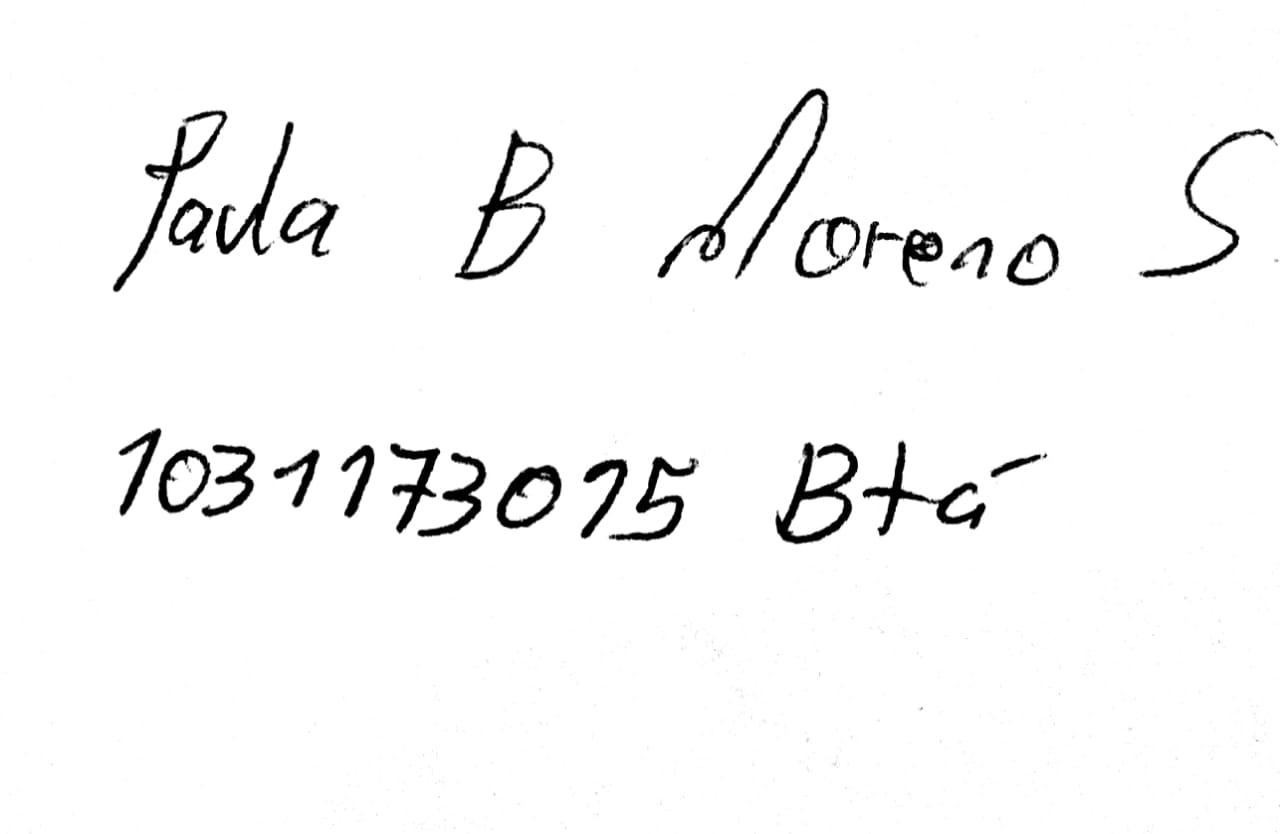 Paula B Moreno S
1031173015 Btá